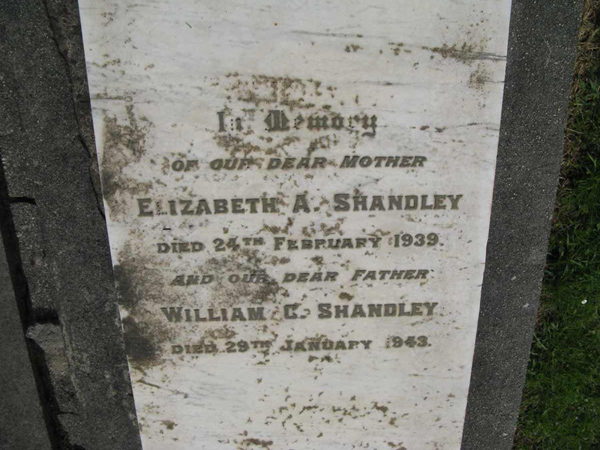 In Memory
OF OUR DEAR MOTHER
ELIZABETH A. SHANDLEY
DIED 24TH FEBRUARY 1939.
AND OUR DEAR FATHER
WILLIAM C. SHANDLEY
DIED 29TH JANUARY 1943.